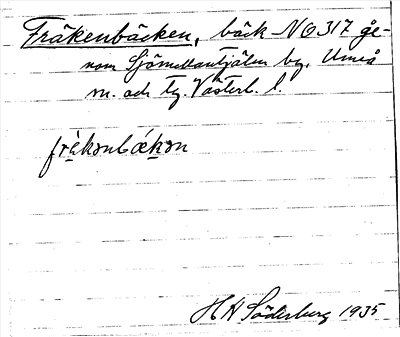 Fräkenbäcken, bäck NO 317 ge-
nom Sjömellantjälen by, Umeå
sn. och tg. Västerb. l.
frèkənbǽkən
HH Söderburg 1935